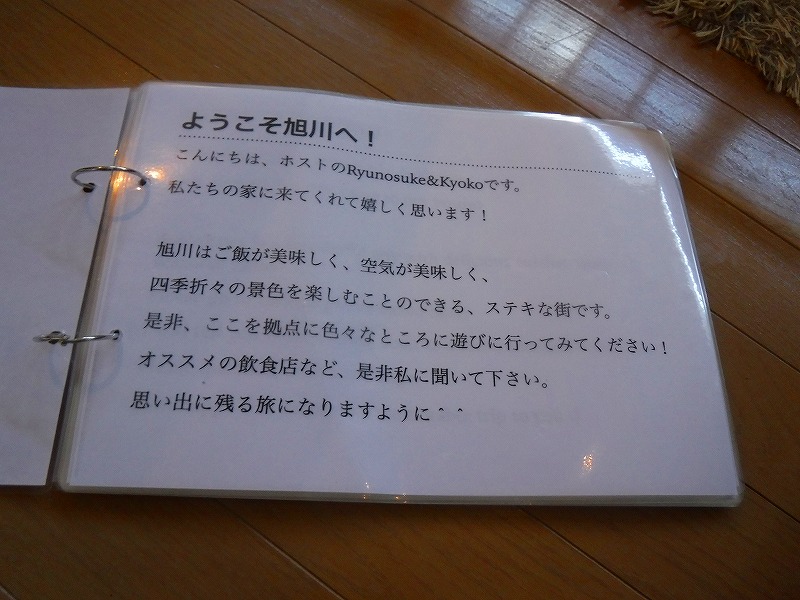 ようこそ旭川へ！
こんにちは、ホストのRyunosuke&Kyokoです。
私たちの家に来てくれて嬉しく思います！
旭川はご飯が美味しく、空気が美味しく、
四季折々の景色を楽しむことのできる、ステキな街です。
是非、ここを拠点に色々なところに遊びに行ってみてください！
オススメの飲食店など、是非私に聞いて下さい。
思い出に残る旅になりますように＾＾